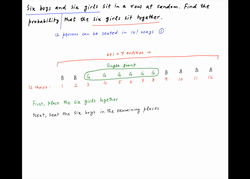 Six boys and six girls sit in a row at random. Find the
probability that the six girls sit together.
12 persons can be seated in 12! ways ①
6! × 7 entities
Single event
B B G G G G G G B B B B
12 chairs: 1 2 3 4 5 6 7 8 9 10 11 12
First, place the six girls together
Next, seat the six boys in the remaining places